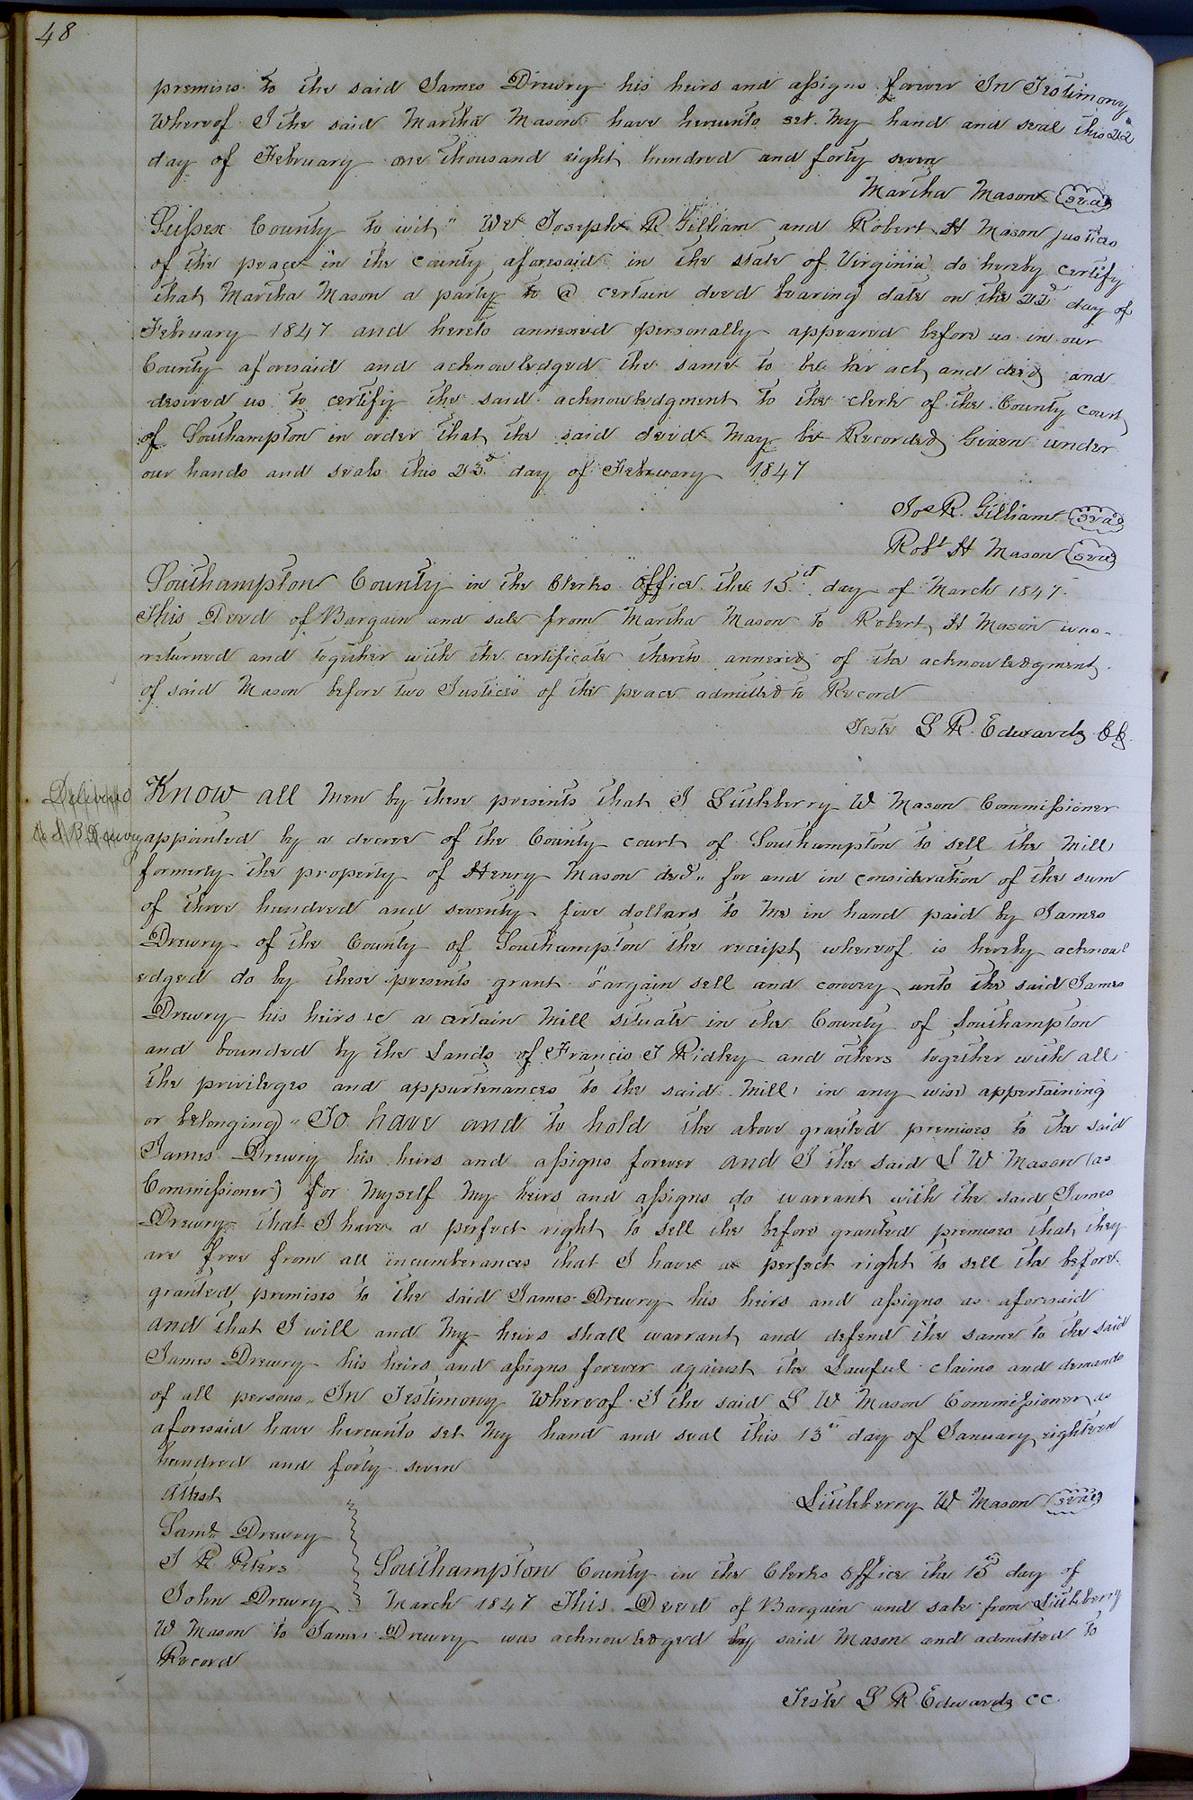 48
premises to the said James Drewry his heirs and assigns forever In Testimony
Whereof I the said Martha Mason have hereunto set my hand and seal this 22d
day of February one thousand eight hundred and forty seven
Martha Mason (seal)
Sussex County to wit" We Joseph R Gilliam and Robert H Mason justices
of the peace in the county aforesaid in the state of Virginia do hereby certify
that Martha Mason a party to @ certain deed bearing date on the 22d day of
February 1847 and hereto annexed personally appeared before us in our
County aforesaid and acknowledged the same to be her act and deed and
desired us to certify the said acknowledgment to the clerk of the County court
of Southampton in order that the said deed May be Recorded Given under
our hands and seals this 23d day of February 1847
Jos R. Gilliam (seal)
Robt H Mason (seal)
Southampton County in the Clerks office the 15st day of March 1847.
This Deed of Bargain and sale from Martha Mason to Robert H Mason was
returned and together with the certificate thereto annexed of the acknowledgment
of said Mason before two Justices of the peace admitted to Record
Teste L R Edwards Clk
Delivered
to S B Drewry
Know all Men by these presents that I Littleberry W Mason Commissioner
appointed by a decree of the County court of Southampton to sell the Mill
formerly the property of Henry Mason decd" for and in consideration of the sum
of three hundred and seventy five dollars to me in hand paid by James
Drewry of the County of Southampton the receipt whereof is hereby acknowl
edged do by these presents grant bargain sell and convey unto the said James
Drewry his heirs &c a certain Mill situate in the County of Southampton
and bounded by the Lands of Francis T Ridley and others together with all
the privileges and appurtenances to the said Mill in any wise appertaining
or belonging" To have and to hold the above granted premises to the said
James Drewry his heirs and assigns forever and I the said L W Mason (as
Commissioner) for Myself My heirs and assigns do warrant with the said James
Drewry that I have a perfect right to sell the before granted premises that they
are free from all incumberances that I have a perfect right to sell the before
granted premises to the said James Drewry his heirs and assigns as aforesaid
and that I will and My heirs shall warrant and defend the same to the said
James Drewry his heirs and assigns forever against the Lawful claims and demands
of all persons" In Testimony Whereof I the said L W Mason Commissioner as
aforesaid have hereunto set My hand and seal this 13th day of January eighteen
hundred and forty seven
Attest
Littleberry W Mason (seal)
Saml Drewry
J R Peters
John Drewry
Southampton County in the Clerks office the 15th day of
March 1847 This Deed of Bargain and sale from Littleberry
W Mason to James Drewry was acknowledged by said Mason and admitted to
Record
Teste L R Edwards CC